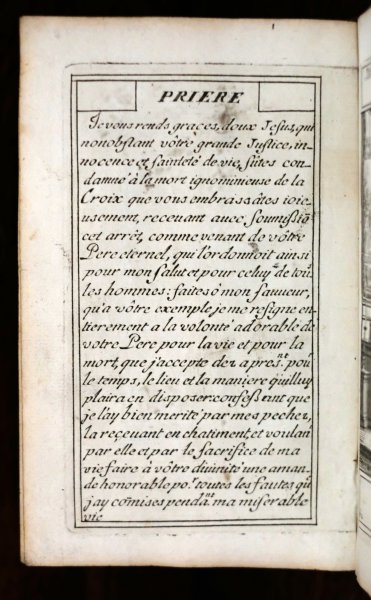 PRIERE
Je vous rends graces, doux Jesus, qui
nonobstant vôtre grande Justice, in-
nocence et sainteté de vie, fûtes con-
damné à la mort ignominieuse de la
Croix que vous embrassâtes ioie-
usement, recevant avec soumißiõ
cet arrêt, comme venant de vôtre
Pere eternel, qui l'ordonnoit ainsi
pour mon salut et pour celuy de tou
les hommes: faites ô mon sauveur,
qu'a vôtre exemple je me resigne en-
tierement a la volonté adorable de
votre Pere pour la vie et pour la
mort, que j'accepte dez a pres.nt pou
le temps, le lieu et la maniere qu'il luy
plaira en disposer confeßant que
je l'ay bien merité par mes pechez,
la reçevant en chatiment, et voulan
par elle et par le sacrifice de ma
vie faire à vôtre divinité une aman-
de honorable po.r toutes les fautes qu
j'ay cõmises pendã.nt ma miserable
vie